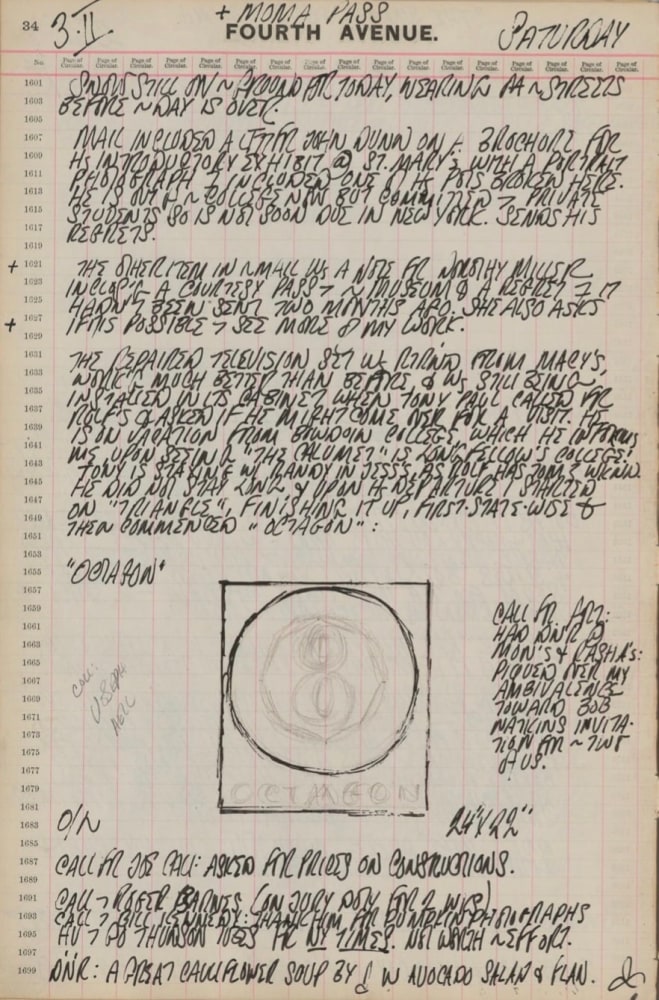 34 3·II + MOMA PASS SATURDAY
FOURTH AVENUE.
No. Page of Circular. Page of Circular. Page of Circular. Page of Circular. Page of Circular. Page of Circular. Page of Circular. Page of Circular. Page of Circular. Page of Circular. Page of Circular. Page of Circular. Page of Circular. Page of Circular. Page of Circular.
1601 SNOW STILL ON ~ GROUND FOR TODAY, NEARING ~ STREETS
1603 BEFORE ~ DAY IS OVER.
1605
1607 MAIL INCLUDED A LTTR FR JOHN DUNN ON A BROCHURE FOR
1609 HS INTRODUCTORY EXHIBIT @ ST. MARY'S WITH A PORTRAIT
1611 PHOTOGRAPH & INCLUDED ONE OF HS POTS BROKEN HERE.
1613 HE IS OUT OF ~ COLLEGE NOW BUT COMMITTED 7 PRIVATE
1615 STUDENTS SO IS NOT SOON DUE IN NEW YORK. SENDS HIS
1617 REGRETS.
1619
+ 1621 THE OTHER ITEM IN ~ MAIL WS A NOTE FR DOROTHY MILLER
1623 INCLOS'G A COURTESY PASS 7 ~ MUSEUM & A REGRET IT
1625 HADN'T BEEN SENT TWO MONTHS AGO. SHE ALSO ASKS
+ 1627 IF IT IS POSSIBLE 7 SEE MORE OF MY WORK.
1629
1631 THE REPAIRED TELEVISION SET WS RTRN'D FROM MACY'S,
1633 WORK'G MUCH BETTER THAN BEFORE, & WS STILL BEING
1635 INSTALLED IN ITS CABINET WHEN TONY PAUL CALLED FR
1637 ROLF'S & ASKED IF HE MIGHT COME OVER FOR A VISIT. HE
1639 IS ON VACATION FROM BOWDOIN COLLEGE, WHICH HE INFORMS
1641 ME, UPON SEEING "THE CALUMET" IS LONGFELLOW'S COLLEGE!
1643 TONY IS STAY'G W/ RANDY IN JESS'S, AS ROLF HAS
1645 HE DID NOT STAY LONG & UPON HS DEPARTURE I STARTED
1647 ON "TRIANGLE", FINISHING IT UP, FIRST-STATE-WISE &
1649 THEN COMMENCED "OCTAGON":
1651
1653
1655 "OCTAGON"
1657
1659 CALL FR
1661 HAD DNR @
1663 MON'S & KASHA'S:
1665 PIQUED OVER MY
1667 AMBIVALENCE
1669 TOWARD BOB
1671 WATKINS INVITA-
1673 TION FOR ~ TWO
1675 OF US.
COLL:
8
1677
1679 OCTAGON
1681
1683 O/L 24"X22"
1685
1687 CALL FR JOE CALI: ASKED FOR PRICES ON CONSTRUCTIONS.
1689
1691 CALL 7 ROGER BARNES (ON JURY DUTY FOR 2 WKS)
1693 CALL 7 BILL KENNEDY: THANK HIM FOR PUMPKIN PHOTOGRAPHS
1695 FR NY TIMES. NOT WORTH ~ EFFORT.
1697
1699 DNR: A GREAT CAULIFLOWER SOUP BY W AVOCADO SALAD & FLAN.